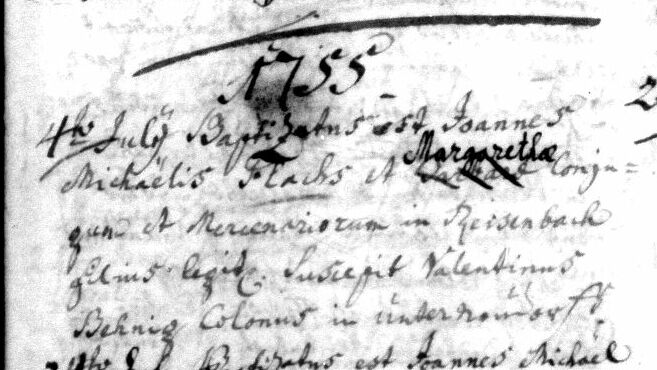 1755
4to July Baptizatus est Joannes
Michaëlis Flachs et Margarethæ Conju=
gum et Mercenariorum in Reisenbach
filius legit. Suscepit Valentinus
Behnig Colonus in
Baptizatus est Joannes Michaël
2